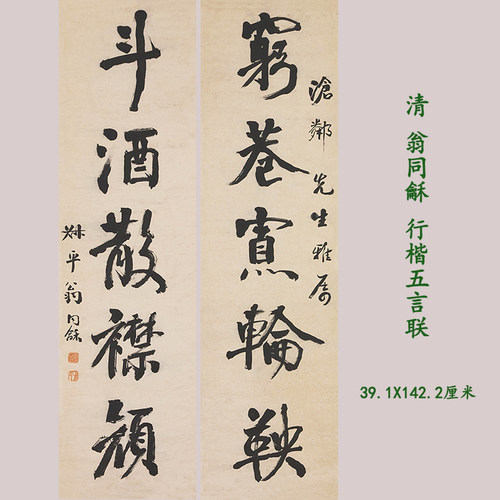 窮巷寡輪鞅
滄鄰先生雅属
斗酒散襟顏
叔平翁同龢
清 翁同龢 行楷五言联
39.1X142.2厘米